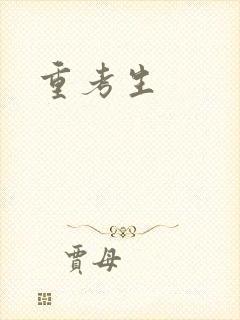 重考生
賈母